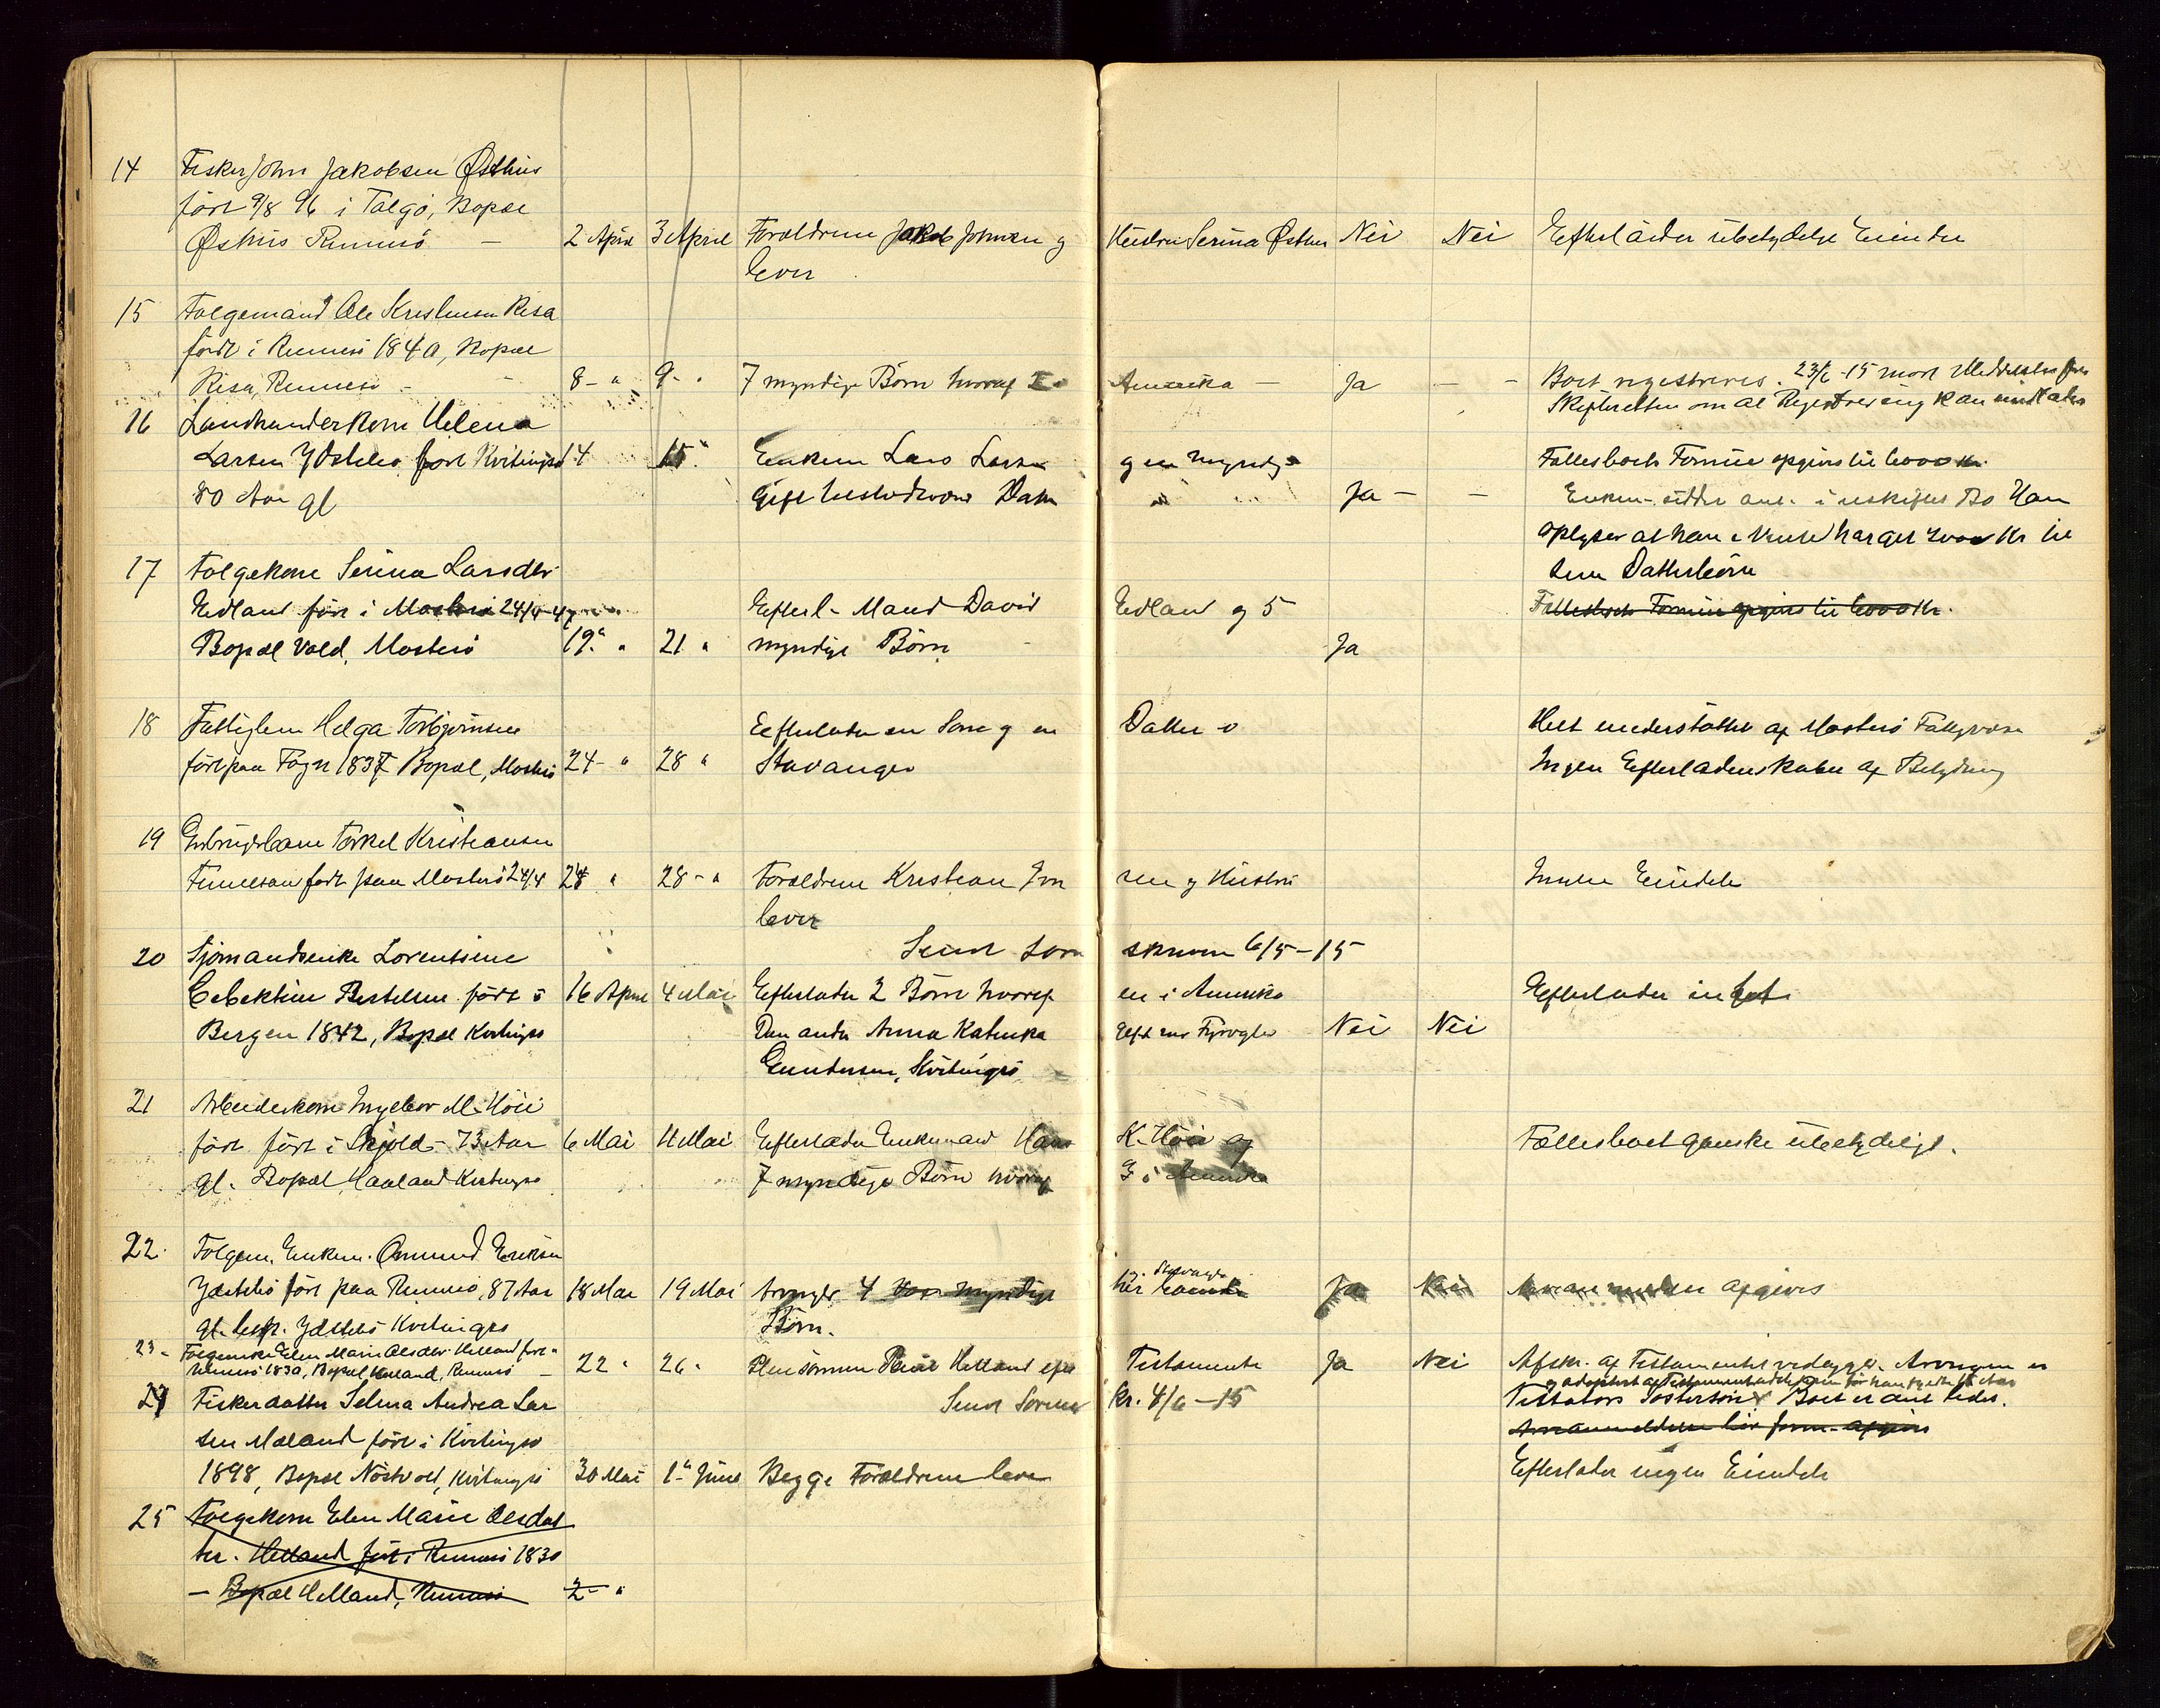 14 Fisker John Jakobsen Østhus
født 9/8 96 i Talgø, Bopæl
Østhus Rennesø — 2 April 3 April Forældrene Jakob Johnsen og Hustru Serina Østhus Nei Nei Efterlader ubetydelige Eiendele
lever
15 Følgemand Ole Kristensen Risa
født i Rennesø 1840, Bopæl
Risa, Rennesø - 8 - " 9 - " 7 myndige Børn hvoraf Amerika — Ja — - Boet registreres. 23/6 -15 mot Meddelelse fra
Skifteretten om at Registrering kan undlades
16 Landhandlerkone Helena
Larsen Ydstebø født Kvitingsø 14 15 " Enkem Lars Larsen og en myndig Fællesboets Formue opgives til 6000 Kr.
80 Aar gl Gift Datter " Ja — — Enkem. sidder ant. i uskiftet Bo Han
oplyser at han i Vinter har git Kr til
sine Datterbørn
17 Følgekone Serina Larsdtr
Eidland født i Mosterø 24/4-47 Efterl. Mand David Eidland og 5 Fællesboets Formue opgives til 6000 Kr.
Bopæl Vold, Mosterø 19 " " 21 " myndige Børn Ja
18 Fattiglem Helga Torbjørnsen Efterlader en Søn og en Datter Helt understøttet af Mosterø Fattigvæsen
født paa Fogn 1837 Bopæl, Mosterø 24 - " 28 " Stavanger Ingen Efterladenskaber af Betydning
19 Gårbrugerbarn Torkel Kristiansen
født paa Mosterø 24/4 24 " 28 - " Forældrene Kristian sen og Hustru Ingen Eiendele
lever
20 Sjømandsenke Lorentsine Sendt Sorenskriveren 6/5-15
Bertelsen født i 16 April 4 Mai Efterlader 2 Børn hvoraf en i Amerika Efterlader intet
Bergen 1842, Bopæl Kvitingsø Den andre Anna Katinka Gift m/ Fyrvogter Nei Nei
Gundersen, Kvitingsø
21 Arbeiderkone Ingebor M. Høie
født født i Skjold - 73 Aar 6 Mai 11 Mai Efterlader Enkemand Hans K. Høie og Fællesboet ganske ubetydeligt.
gl. Bopæl, Haaland Kvitingsø 7 myndige Børn hvoraf 3 i Amerika
22. Følgem. Enkem. Omund Eriksen
Ydstebø født paa Rennesø, 87 Aar 18 Mai 19 Mai Arvinger 4 myndige Ja Nei afgives
gl. Ydstebø Kvitingsø Børn.
23 - Følgeenke Elen Marie Olesdtr Helland født i
Rennesø 1830, Bopæl Helland, Rennesø — 22 " 26 " Pleiesønnen Peder Helland efter Testamente Ja Nei Afskr. af Testamentet vedlægges. Arvingen er
24 Fiskerdatter Selma Andrea Lar Sendt Sorenskr. 4/6 -15 Testators Søstersøn Boet er ant.
sen Mæland født i Kvitingsø
1898, Bopæl Nordvold, Kvitingsø 30 Mai 1ste Juni Begge Forældrene lever Efterlader ingen Eiendele
25 Følgekone Elen Marie Olesdat
ter. Helland født i Rennesø 1830
— Bopæl Helland, Rennesø 2 - "